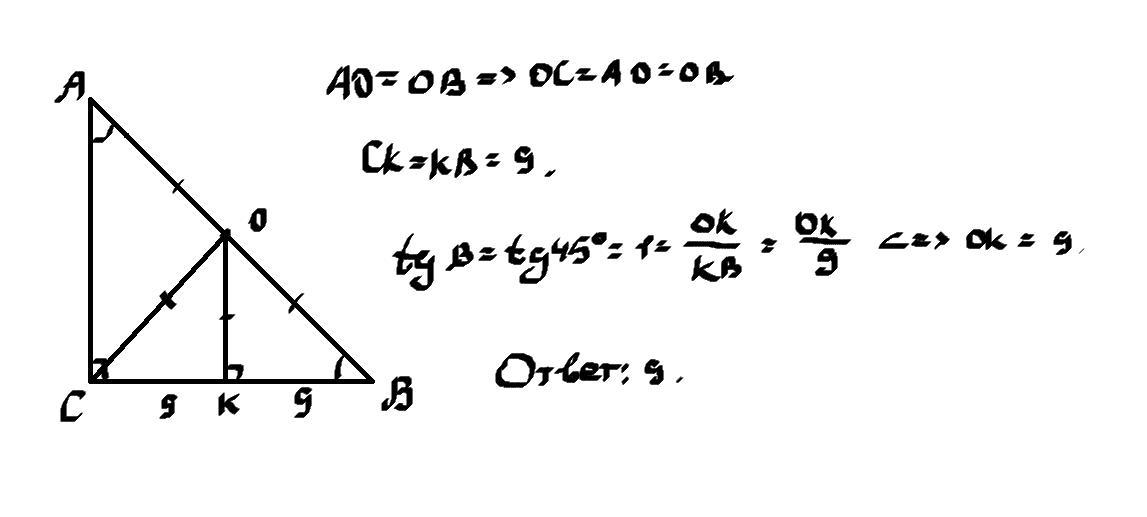 A
AO = OB => OC = AO = OB
CK = KB = 9.
O
tg B = tg 45° = 1 = OK/KB = OK/9 <=> OK = 9.
Ответ: 9.
C 9 K 9 B